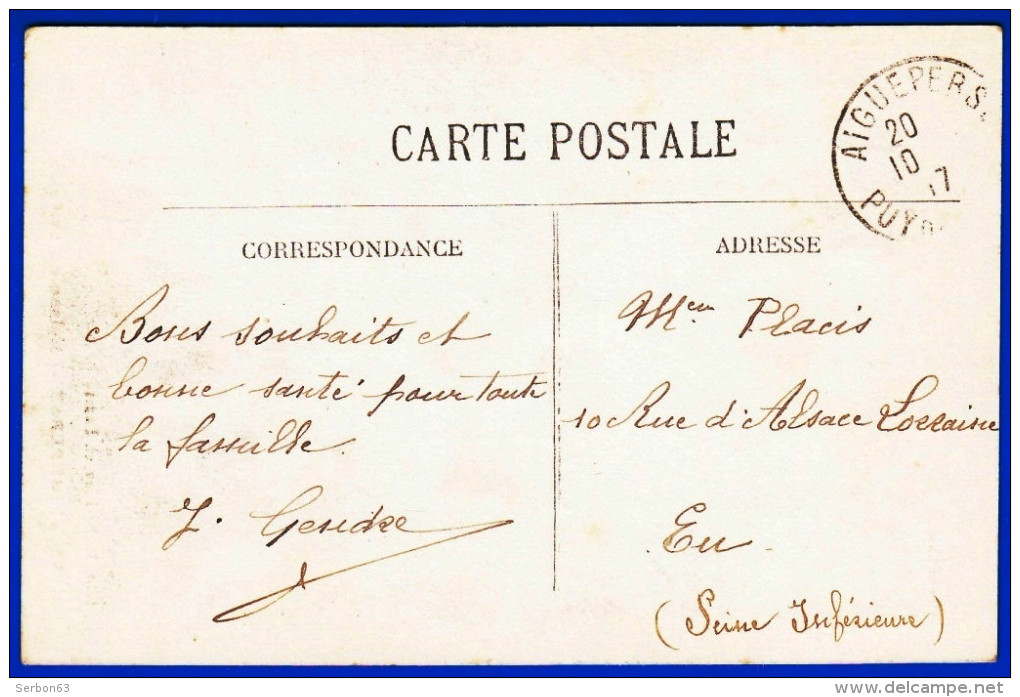 CARTE POSTALE
AIGUEPERSE
20
10 17
PUY DE
CORRESPONDANCE
Bons souhaits et
bonne santé pour toute
la famille.
J. Gendre
ADRESSE
Placis
10 Rue d'Alsace Lorraine
Eu
(Seine Inférieure)
Serbon63
www.delcampe.net